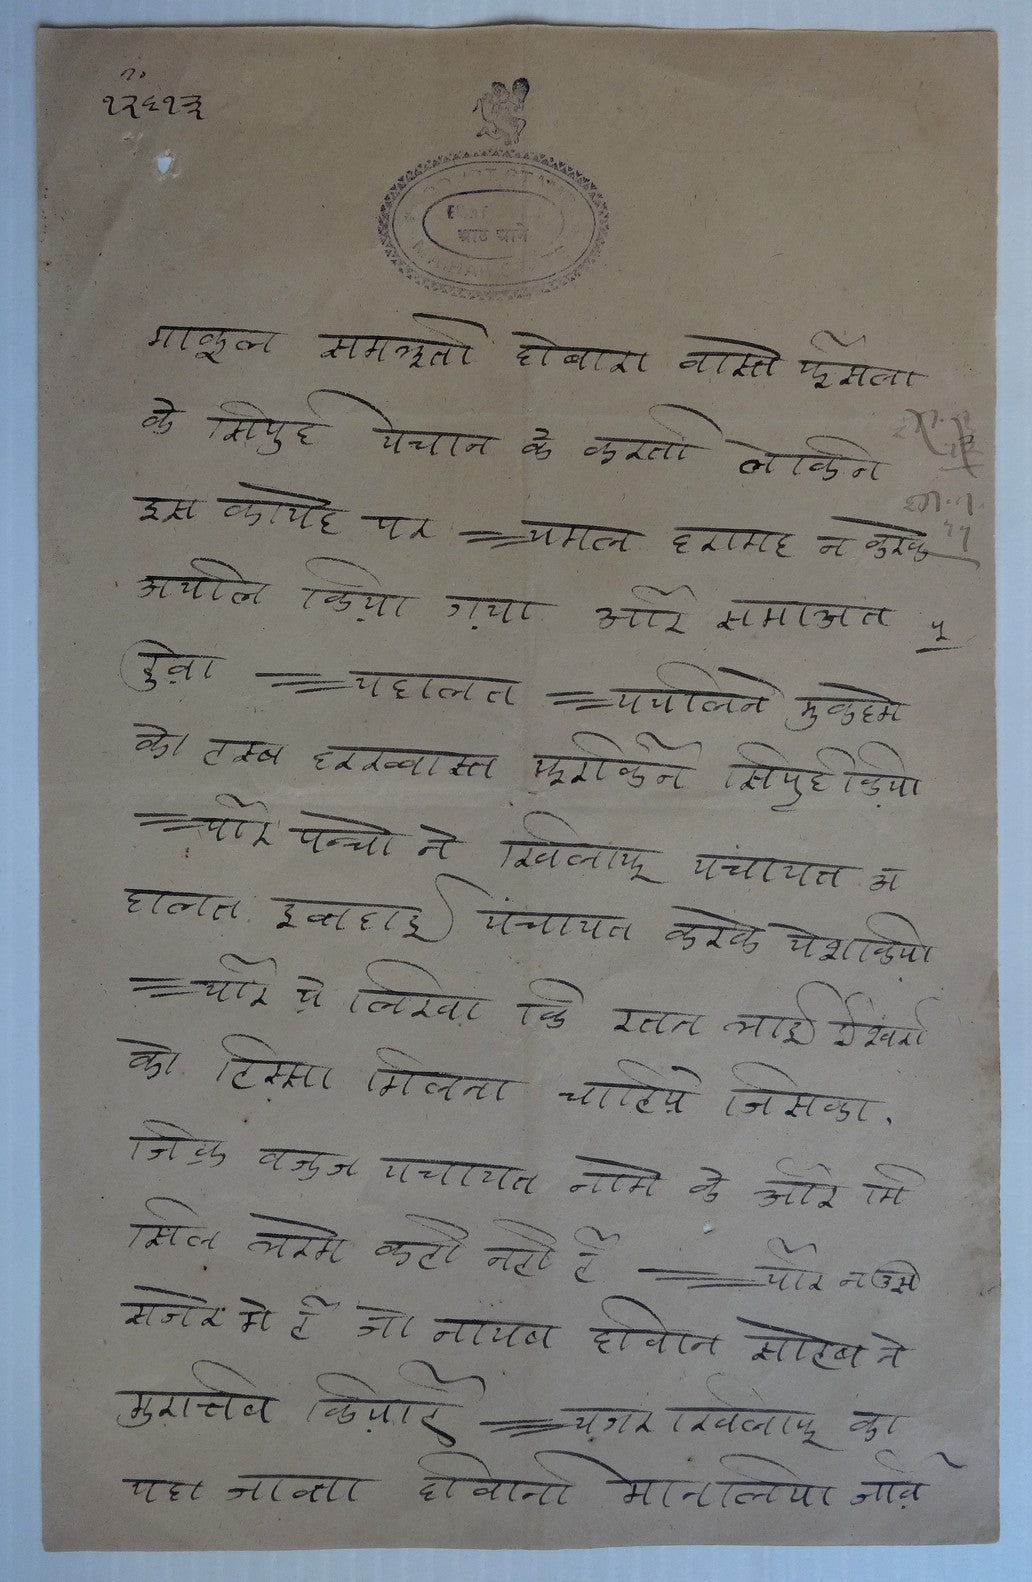 नं०
१२६१३
COURT STAMP
आठ आने
माकूल समझता दोबारा वास्ते फैसला
के सिपुर्द पंचान के करता लेकिन
इस कायदे पर अमल दरामद न करके
अपील किया गया और समाअत
हुवा अदालत अपीलने मुकद्दमे
को हस्ब दरख्वास्त फरीकैन सिपुर्द किया
और पन्चो ने खिलाफ पंचायत अ
दालत इब्तदाई पंचायत करके पेश किया
और ये लिखा कि रतन बाई ईश्वरी
को हिस्सा मिलना चाहिये जिसका
जिक्र बजुज पंचायत नामे के और मि
सिल भरमे कही नही है और न उस
सजरे मे है जो नायब दीवान साहब ने
मुरत्तब किया है अगर खिलाफ का
यदा जाब्ता दीवानी मान लिया जावे